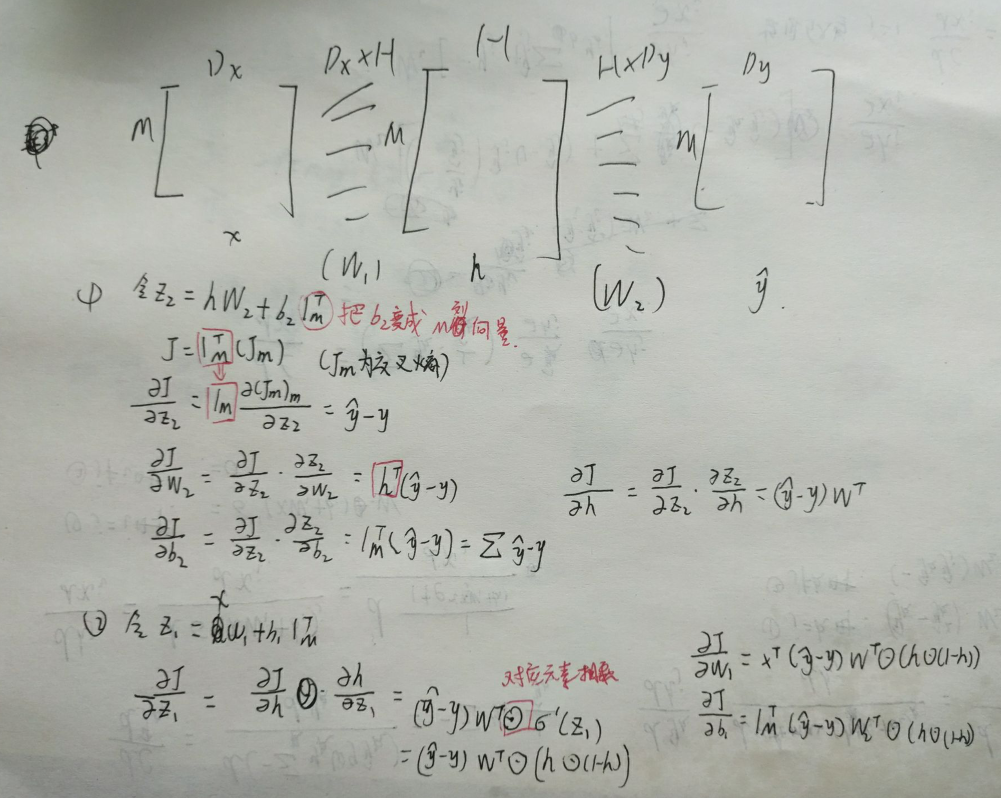 Dx Dx×H H H×Dy Dy
m m m
x (W₁) h (W₂) ŷ.
① 令 z₂ = hW₂ + b₂ 1ₘᵀ 把b₂变成 m列向量.
J = 1ₘᵀ(Jₘ) (Jₘ为交叉熵)
∂J/∂z₂ = 1ₘ ∂(Jₘ)ₘ/∂z₂ = ŷ-y
∂J/∂W₂ = ∂J/∂z₂ · ∂z₂/∂W₂ = hᵀ(ŷ-y) ∂J/∂h = ∂J/∂z₂ · ∂z₂/∂h = (ŷ-y)Wᵀ
∂J/∂b₂ = ∂J/∂z₂ · ∂z₂/∂b₂ = 1ₘᵀ(ŷ-y) = ∑ ŷ-y
② 令 z₁ = xW₁ + b₁ 1ₘᵀ
∂J/∂z₁ = ∂J/∂h ⊙ ∂h/∂z₁ = (ŷ-y)Wᵀ ⊙ σ'(z₁) 对应元素相乘
= (ŷ-y)Wᵀ ⊙ (h⊙(1-h))
∂J/∂W₁ = xᵀ(ŷ-y)Wᵀ⊙(h⊙(1-h))
∂J/∂b₁ = 1ₘᵀ(ŷ-y)W₂ᵀ⊙(h⊙(1-h))